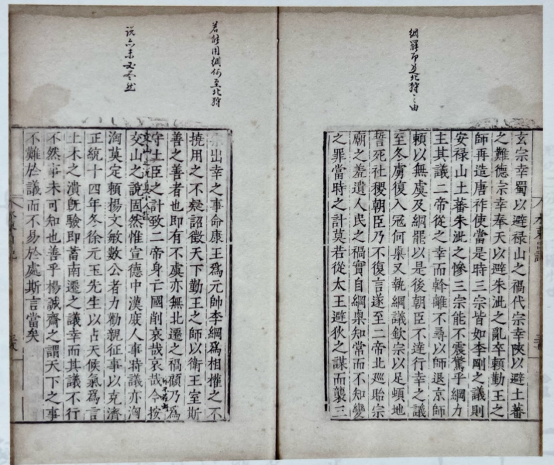 綱罪即是北狩之由
玄宗幸蜀以避祿山之禍代宗幸陝以避土蕃
之難德宗幸奉天以避朱泚之亂卒賴勤王之
師再造唐祚使當是時三宗皆如李剛之議則
安祿山土蕃朱泚之慘三宗能不震驚乎綱力
主其議二帝從之幸而斡離不尋以師退京師
賴以無虞及綱罷以是後朝臣不達行幸之議
至冬虜復入冦何㮚又執綱議欽宗以足頓地
誓死社稷朝臣乃不復言遂至二帝北廵貽宗
廟之羞遺人民之禍實自綱㮚知常而不知變
之罪當時之計莫若從太王避狄之謀而築三
若能用綱何至北狩
說亦未必盡然
出幸之事命康王爲元帥李綱爲相權之不
撓用之不疑詔徵天下勤王之師以衛王室斯
善之善者也即有不虞亦無北遷之禍顧乃爲
守土臣之計致二帝身亡國削哀哉哀哉今按
交山之說固然惟宣德中漢庻人事時議亦洶
洶莫定賴揚文敏數公者力勸親征事以克濟
正統十四年冬徐元玉先生以占天候氣爲言
土木之潰旣驗即蓄南遷之議幸而其議不行
不然事未可知也善乎揚誠齊之謂天下之事
不難於議而不易於處斯言當矣